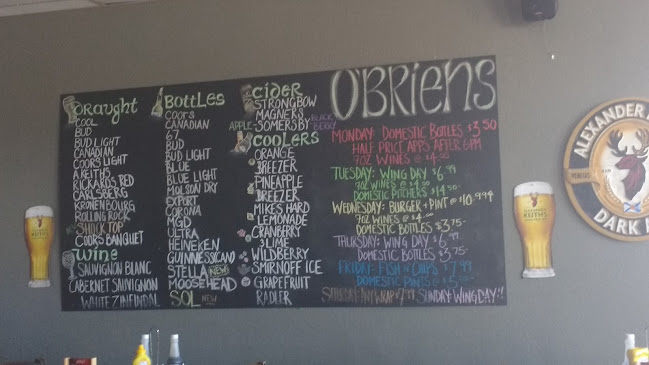 Draught
COOL
BUD
BUD LIGHT
CANADIAN
COORS LIGHT
A.KEITHS
RICKARDS RED
CARLSBERG
KRONENBOURG
ROLLING ROCK
SHOCK TOP
COORS BANQUET
Wine
SAUVIGNON BLANC
CABERNET SAUVIGNON
WHITE ZINFINDAL
Bottles
COORS
CANADIAN
67
BUD
BUD LIGHT
BLUE
BLUE LIGHT
MOLSON DRY
EXPORT
CORONA
MGD
ULTRA
HEINEKEN
GUINNESS(CAN)
STELLA NEW
MOOSEHEAD
SOL NEW
Cider
STRONGBOW
MAGNERS
APPLE-SOMERSBY BLACK BERRY
COOLERS
ORANGE
BREEZER
PINEAPPLE
BREEZER
MIKES HARD
LEMONADE
CRANBERRY
& LIME
WILDBERRY
SMIRNOFF ICE
GRAPEFRUIT
RADLER
O'BRIENS
MONDAY: DOMESTIC BOTTLES $3.50
HALF PRICE APPS AFTER 6PM
7OZ WINES @ $4.00
TUESDAY: WING DAY $6.99
7OZ WINES @ $4.00
DOMESTIC PITCHERS $14.50
WEDNESDAY: BURGER + PINT @ $10.99
7OZ WINES @ $4.00
DOMESTIC BOTTLES $3.75
THURSDAY: WING DAY $6.99
DOMESTIC BOTTLES $3.75
FRIDAY: FISH N CHIPS $7.99
DOMESTIC PINTS @ $5.00
SATURDAY: ANY WRAP $7.99 SUNDAY: WING DAY!!
KEITHS
ALEXANDER
DARK
KEITHS